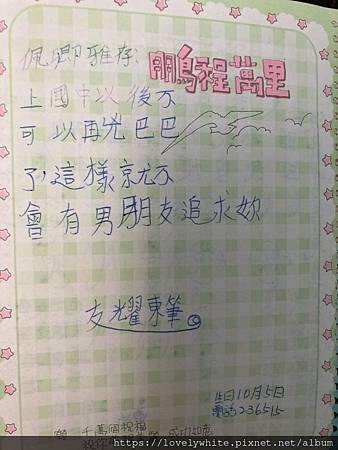 佩卿雅存:
鵬程萬里
上國中以後不
可以再兇巴巴
了,這樣就不
會有男朋友追求妳
友耀東筆
生日10月5日
電話236515
千萬個祝福
https://lovelywhite.pixnet.net/album